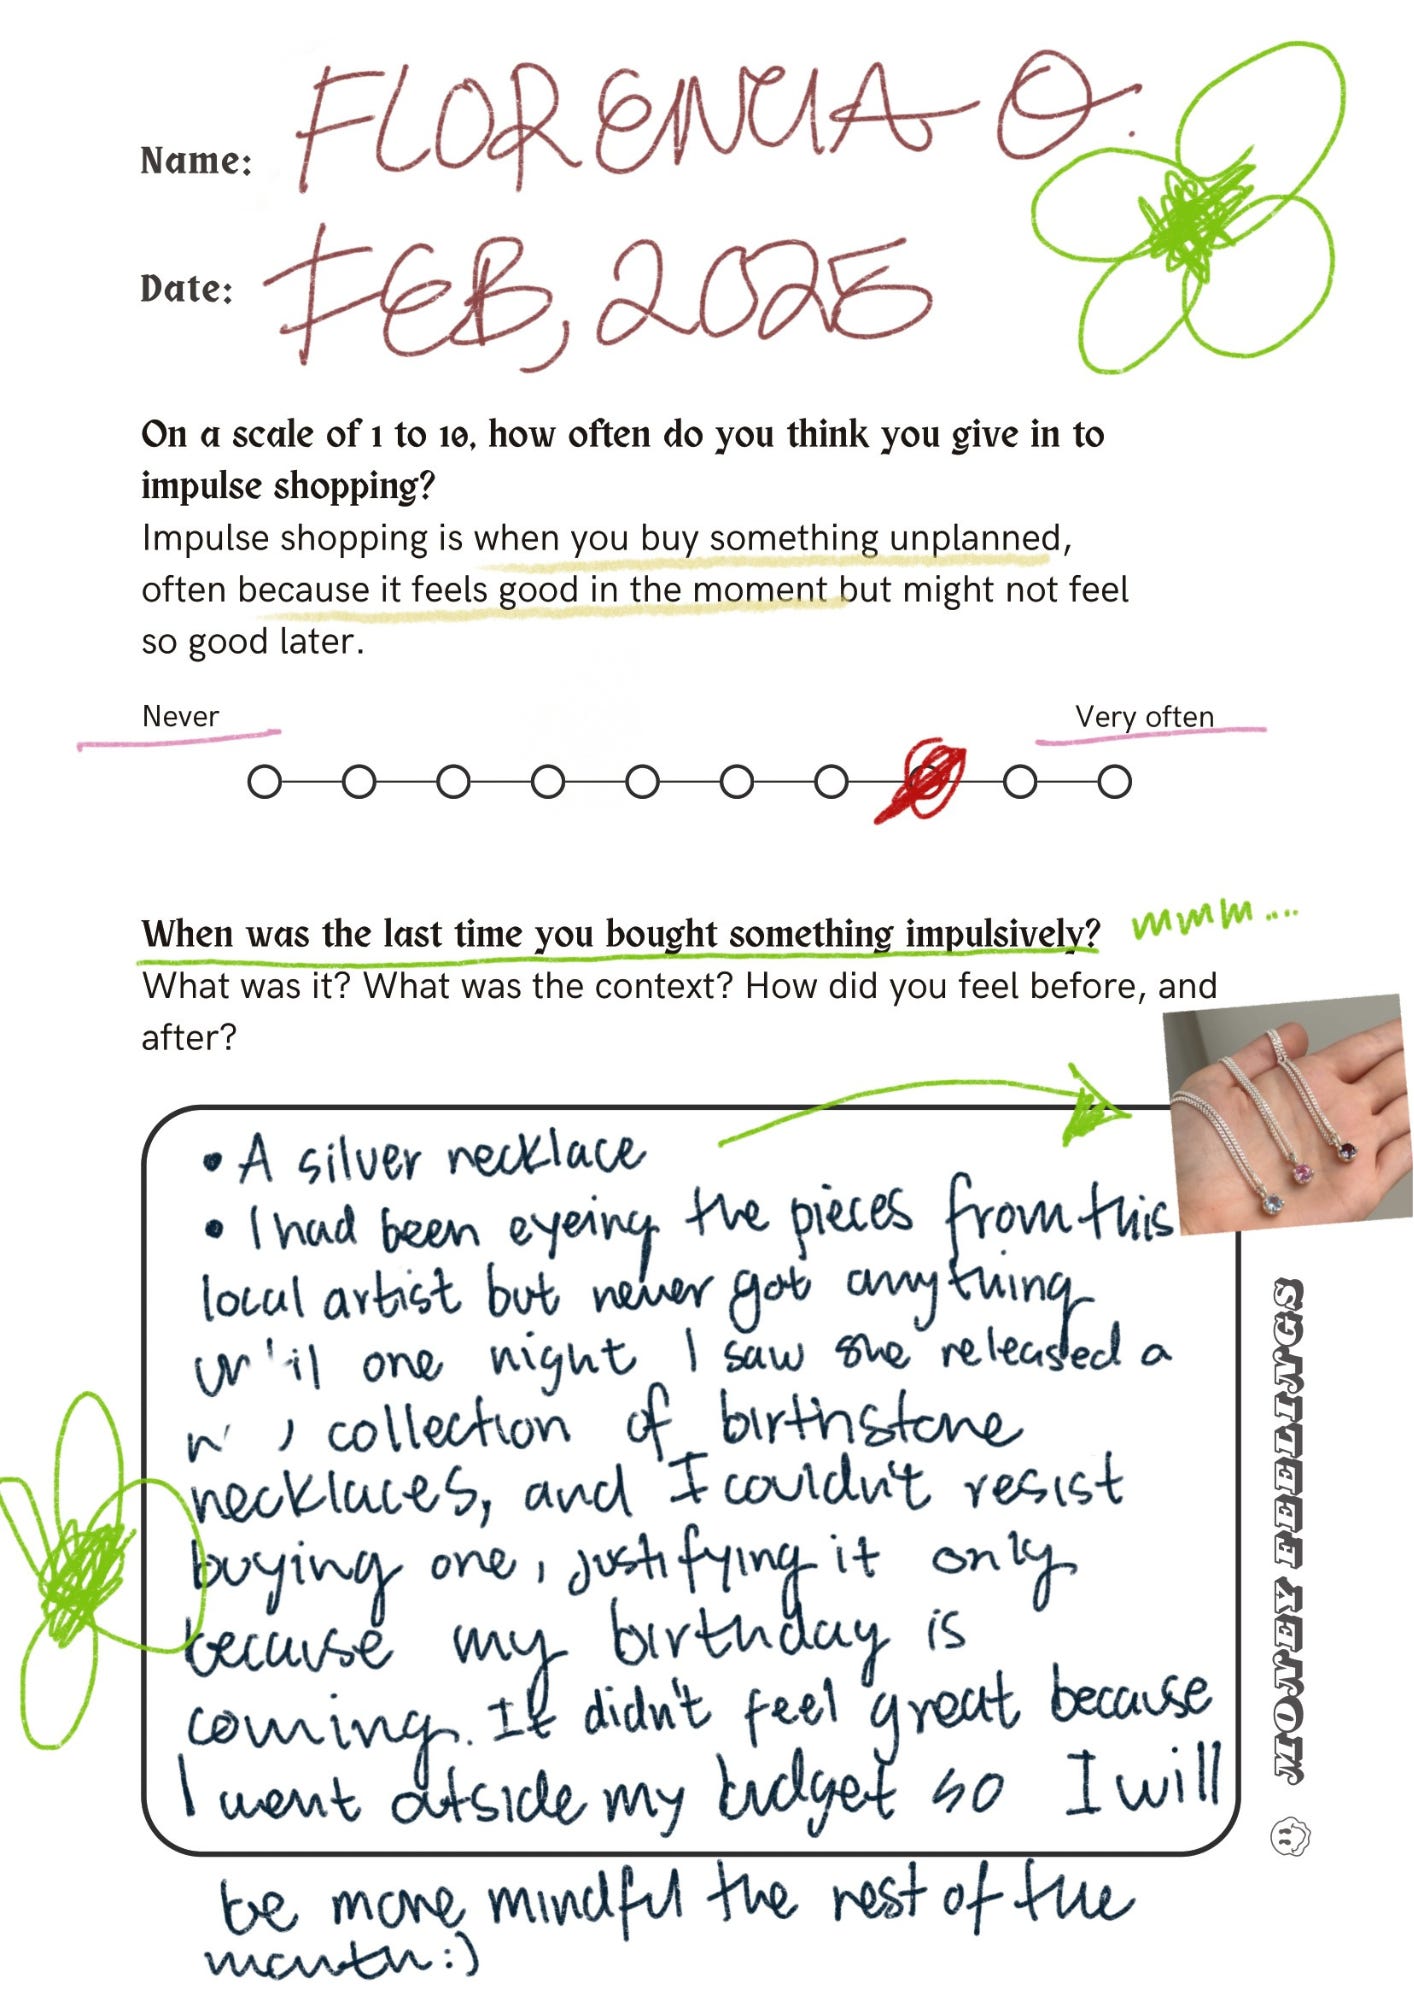 Name: FLORENCIA O.
Date: FEB, 2025
On a scale of 1 to 10, how often do you think you give in to
impulse shopping?
Impulse shopping is when you buy something unplanned,
often because it feels good in the moment but might not feel
so good later.
Never
Very often
When was the last time you bought something impulsively? mmm....
What was it? What was the context? How did you feel before, and
after?
• A silver necklace
• I had been eyeing the pieces from this
local artist but never got anything
one night I saw she released a
collection of birthstone
necklaces, and I couldn't resist
buying one, justifying it only
because my birthday is
coming. It didn't feel great because
I went outside my budget so I will
be more mindful the rest of the
month :)
MONEY FEELINGS